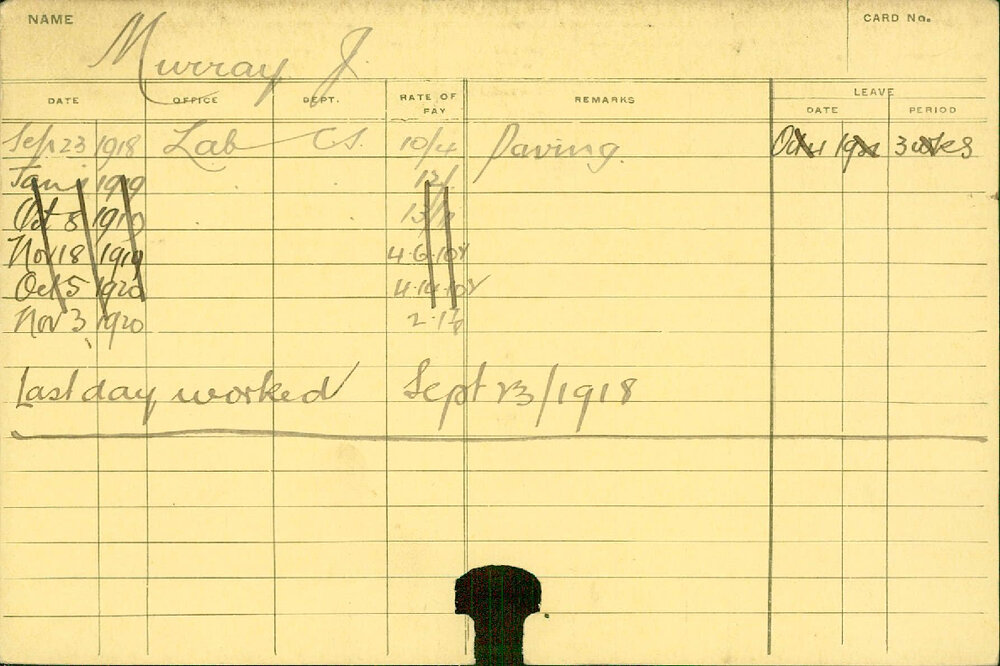 NAME Murray J. CARD No.
DATE OFFICE DEPT. RATE OF PAY REMARKS LEAVE
DATE PERIOD
Sep 23 1918 Lab CS. 10/4 Paving. Oct 1 3 wks
Jan 1 1919 12/
Oct 8 1919
Nov 18 1919 4-6-10½
Oct 5 1920
Nov 3 1920
Last day worked Sept 23/1918